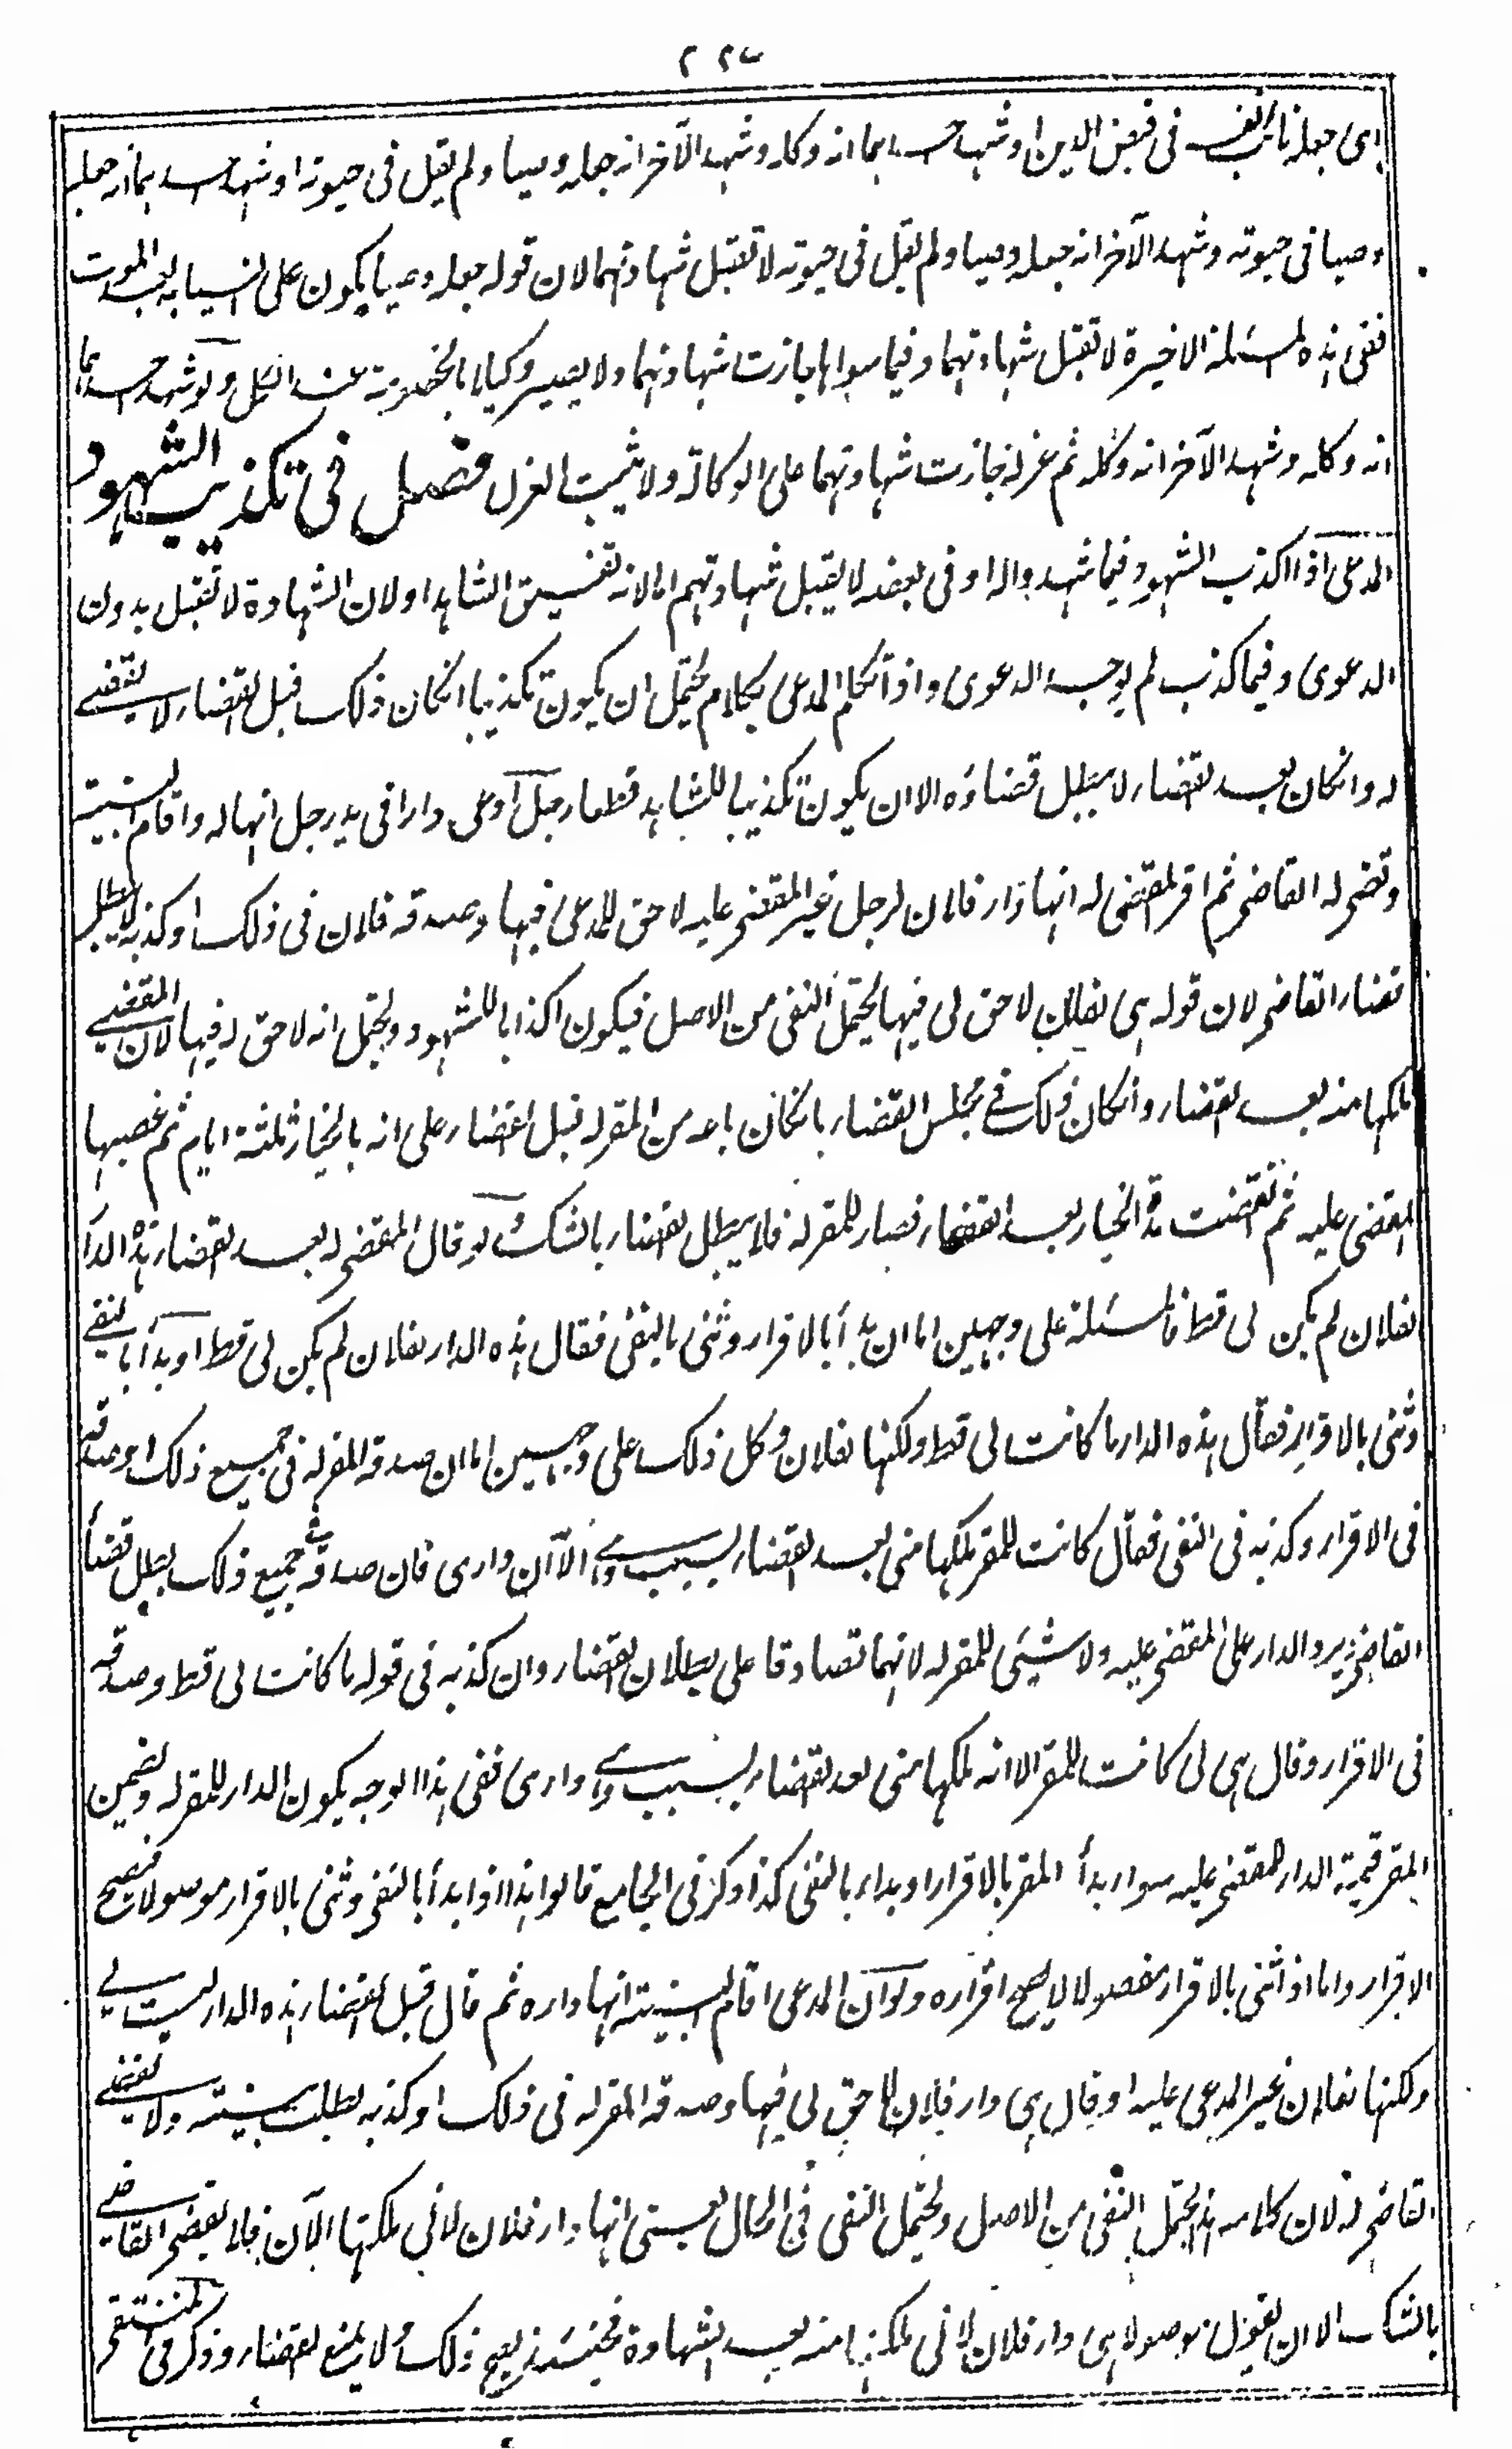 ٢٢٧
اى جعله نائب فى قبض الدين او شهد احدهما انه وكله وشهد الآخر انه جعله وصيا ولم يقل فى حيوته او شهد احدهما انه جعله
وصيا فى حيوته وشهد الآخر انه جعله وصيا ولم يقل فى حيوته لا تقبل شهادتهما لان قوله جعله وصيا يكون على النيابة بعد الموت
ففى هذه المسئلة الاخيرة لا تقبل شهادتهما وفيما سواها جازت شهادتهما ولا يصير وكيلا بالخصومة عند الكل ولو شهد احدهما
انه وكله وشهد الآخر انه وكله ثم عزله جازت شهادتهما على الوكالة ولا يثبت العزل فصل فى تكذيب الشهود
المدعى اذا اكذب الشهود فيما شهدوا له او فى بعضه لا يقبل شهادتهم اما لانه تفسيق الشاهد او لان الشهادة لا تقبل بدون
الدعوى وفيما كذب لم يوجد الدعوى واذا تكلم المدعى بكلام يحتمل ان يكون تكذيبا انكان ذلك قبل القضاء لا يقضى
له وانكان بعد القضاء لا يبطل قضاؤه الا ان يكون تكذيبا للشاهد قطعا رجل ادعى دارا فى يد رجل انها له واقام البينة
وقضى له القاضى ثم اقر المقضى له انها دار فلان لرجل غير المقضى عليه لا حق للمدعى فيها وصدقه فلان فى ذلك او كذبه لا يبطل
قضاء القاضى لان قوله هى لفلان لا حق لى فيها يحتمل النفى من الاصل فيكون اكذابا للشهود ويحتمل انه لا حق له فيها لان المقضى
ملكها منه بعد القضاء وانكان ذلك فى مجلس القضاء بانكان باعه من المقر له قبل القضاء على انه بالخيار ثلثة ايام ثم غصبها
المقضى عليه ثم انقضت مدة الخيار بعد القضاء فصار للمقر له فلا يبطل القضاء بالشك ولو قال المقضى له بعد القضاء هذه الدار
لفلان لم يكن لى قط فالمسئلة على وجهين اما ان بدأ بالاقرار وثنى بالنفى فقال هذه الدار لفلان لم يكن لى قط او بدأ بالنفى
وثنى بالاقرار فقال هذه الدار ما كانت لى قط ولكنها لفلان وكل ذلك على وجهين اما ان صدقه المقر له فى جميع ذلك او صدقه
فى الاقرار وكذبه فى النفى فقال كانت للمقر ملكها منى بعد القضاء بسبب وهى الآن دارى فان صدقه فى جميع ذلك بطل قضاء
القاضى ويرد الدار على المقضى عليه ولا شيئى للمقر له لانهما تصادقا على بطلان القضاء وان كذبه فى قوله ما كانت لى قط وصدقه
فى الاقرار وقال هى لى كانت للمقر الا انه ملكها منى بعد القضاء بسبب وهى دارى ففى هذا الوجه يكون الدار للمقر له ويضمن
المقر قيمة الدار للمقضى عليه سواء بدأ المقر بالاقرار او بداء بالنفى كذا ذكر فى الجامع قالوا هذا اذا بدأ بالنفى وثنى بالاقرار موصولا فيصح
الاقرار واما اذا ثنى بالاقرار مفصولا لا يصح اقراره ولو ان المدعى اقام البينة انها داره ثم قال قبل القضاء هذه الدار ليست لى
ولكنها لفلان غير المدعى عليه او قال هى دار فلان لا حق لى فيها وصدقه المقر له فى ذلك او كذبه بطلت بينته ولا يقضى
القاضى له لان كلامه هذا يحتمل النفى من الاصل ويحتمل النفى فى الحال يعنى انها دار فلان لانى ملكتها الآن فلا يقضى القاضى
بالشك الا ان يقول موصولا هى دار فلان لانى ملكتها منه بعد الشهادة فحينئذ يصح ذلك ولا يمنع القضاء وذكر فى المنتقى